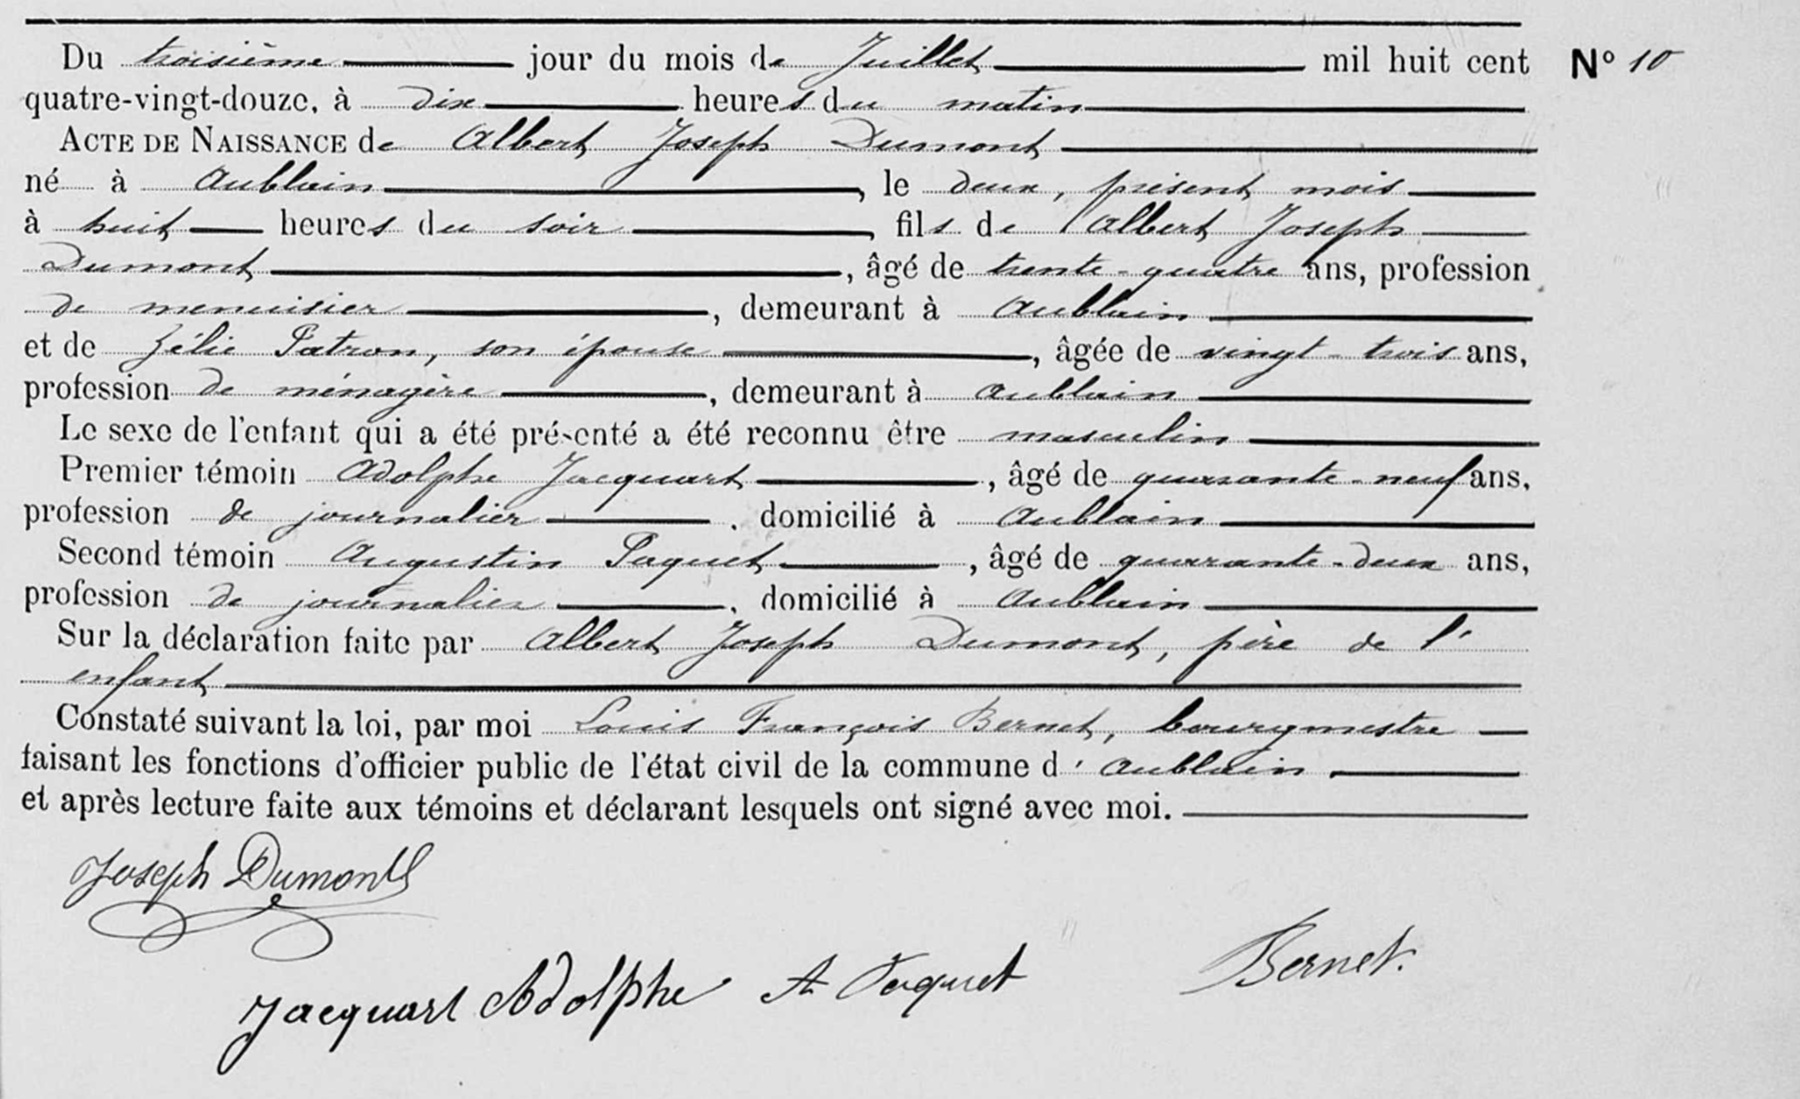 Du troisième jour du mois de Juillet mil huit cent N° 10
quatre-vingt-douze, à dix heures du matin
ACTE DE NAISSANCE de Albert Joseph Dumont
né à Aublain, le deux, présent mois
à huit heures du soir, fils de Albert Joseph
Dumont, âgé de trente-quatre ans, profession
de menuisier, demeurant à Aublain
et de Zélie Patron, son épouse, âgée de vingt-trois ans,
profession de ménagère, demeurant à Aublain
Le sexe de l'enfant qui a été présenté a été reconnu être masculin
Premier témoin Adolphe Jacquart, âgé de quarante-neuf ans,
profession de journalier, domicilié à Aublain
Second témoin Augustin Paquet, âgé de quarante-deux ans,
profession de journalier, domicilié à Aublain
Sur la déclaration faite par Albert Joseph Dumont, père de l'
enfant
Constaté suivant la loi, par moi Louis François Bernet, bourgmestre
faisant les fonctions d'officier public de l'état civil de la commune d'Aublain
et après lecture faite aux témoins et déclarant lesquels ont signé avec moi.
Joseph Dumont
Jacquart Adolphe A Paquet Bernet.